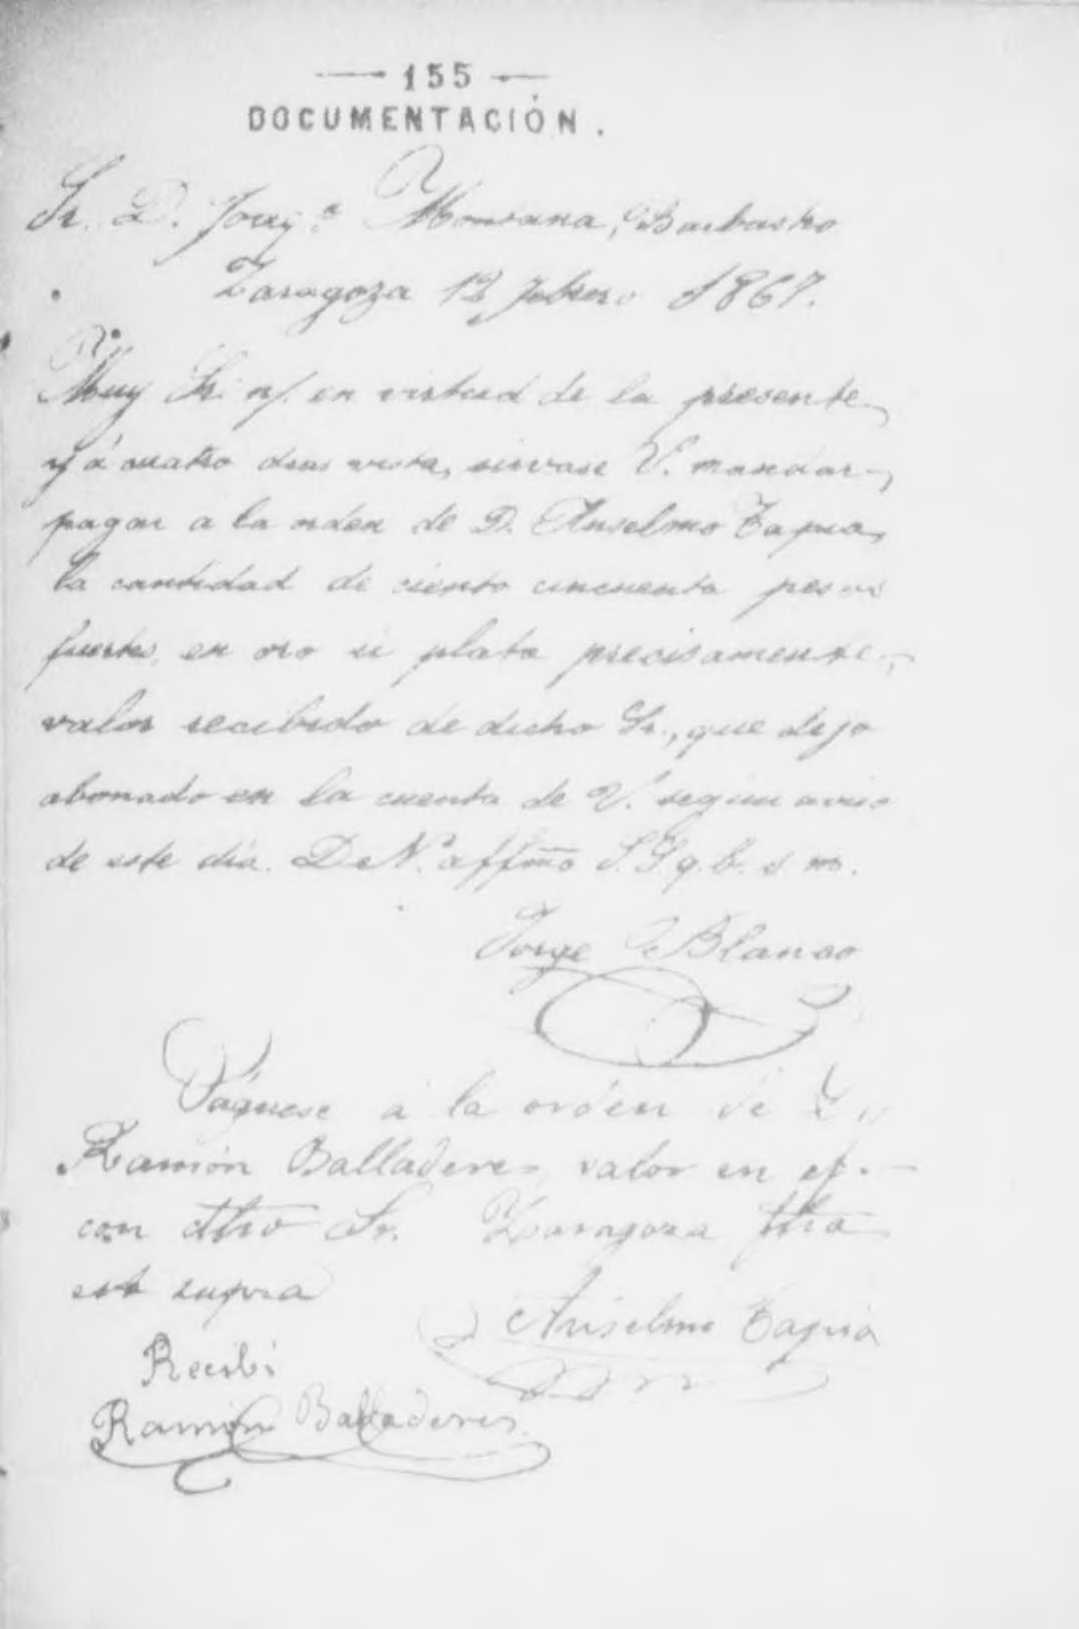 — 155 —
DOCUMENTACIÓN.
Sr. D. Joaq.ⁿ Monsana, Barbastro
Zaragoza 12 febrero 1867.
Muy Sr. n/. en virtud de la presente
y á cuatro dias vista, sirvase V. mandar
pagar a la orden de D. Anselmo Tapia
la cantidad de ciento cincuenta pesos
fuertes, en oro ú plata precisamente,
valor recibido de dicho Sr., que dejo
abonado en la cuenta de V. segun aviso
de este dia. De V. affmo S. S. q. b. s. m.
Jorge Blanco
Páguese á la orden de D.
Ramón Balladeres, valor en ef.
con dho Sr. Zaragoza fha
ut supra
Anselmo Tapia
Recibí
Ramón Balladeres.